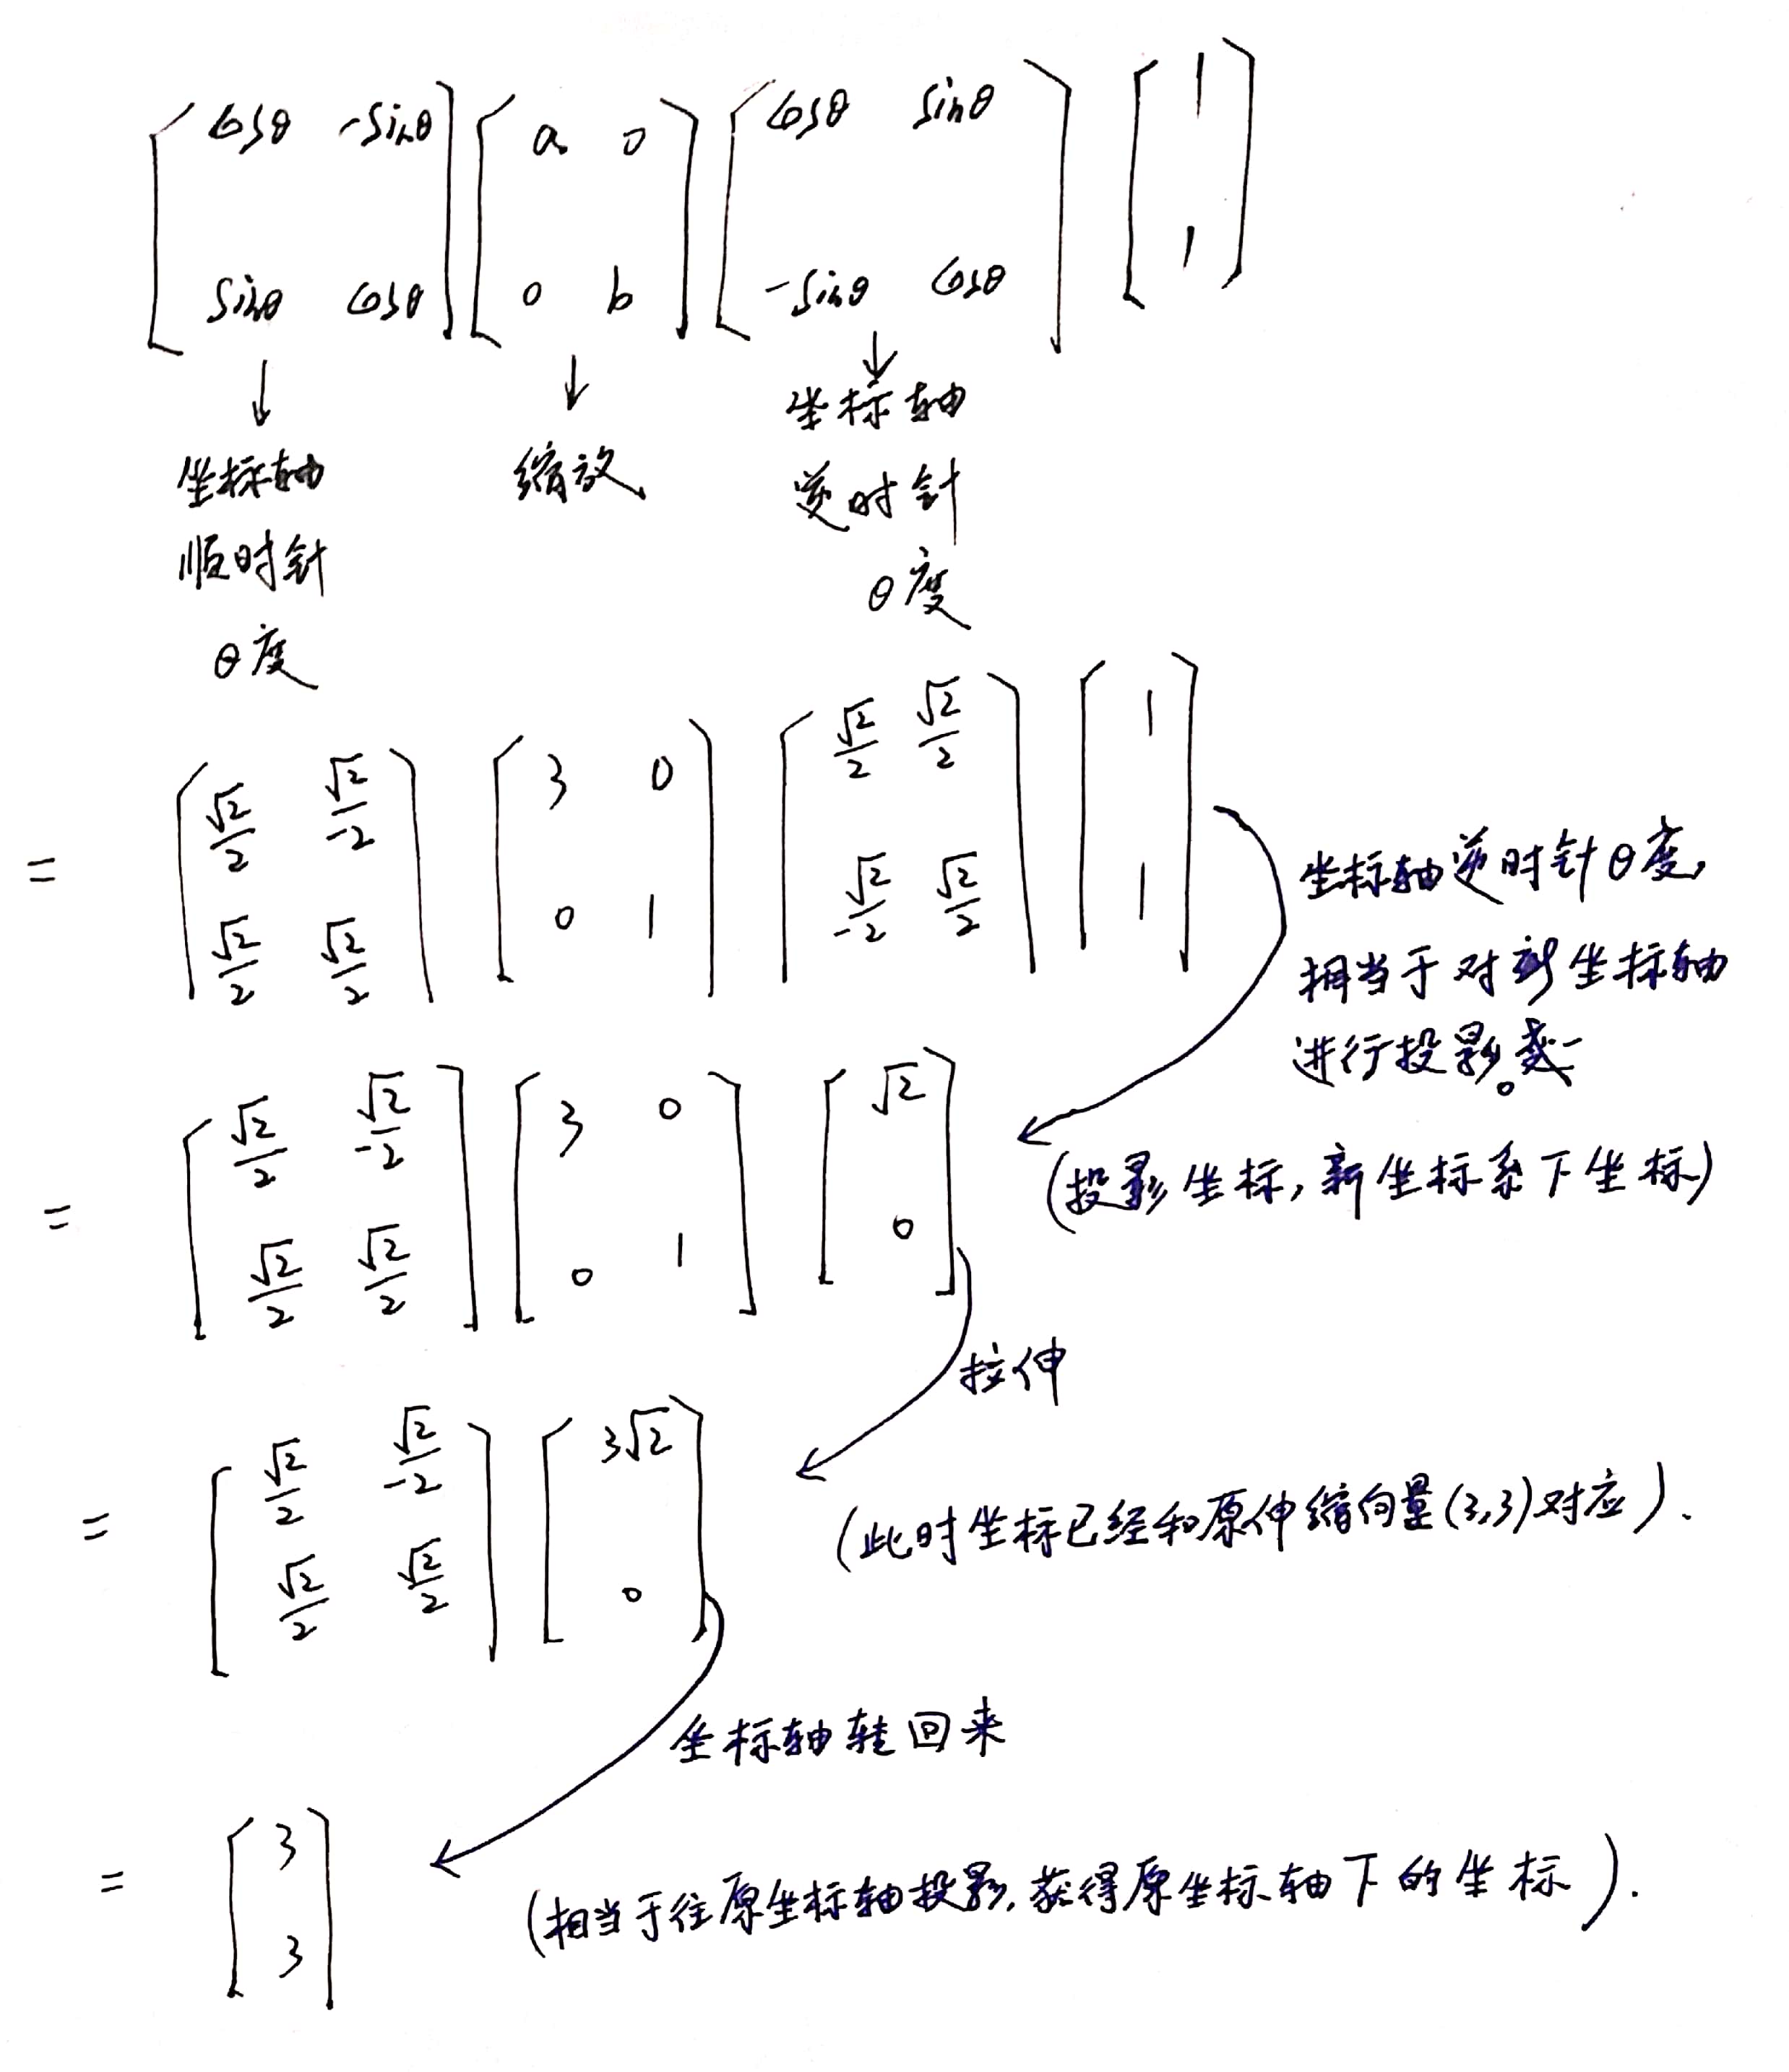 [cosθ -sinθ] [a 0] [cosθ sinθ] [1]
[sinθ cosθ] [0 b] [-sinθ cosθ] [1]
↓ ↓ ↓
坐标轴
顺时针
θ度
缩放
坐标轴
逆时针
θ度
= [√2/2 √2/-2] [3 0] [√2/2 √2/2] [1]
[√2/2 √2/2] [0 1] [√2/-2 √2/2] [1]
坐标轴逆时针θ度,
相当于对新坐标轴
进行投影。
= [√2/2 √2/-2] [3 0] [√2]
[√2/2 √2/2] [0 1] [0]
(投影坐标,新坐标系下坐标)
拉伸
= [√2/2 √2/-2] [3√2]
[√2/2 √2/2] [0]
(此时坐标已经和原伸缩向量(3,3)对应).
坐标轴转回来
= [3]
[3]
(相当于往原坐标轴投影,获得原坐标轴下的坐标).